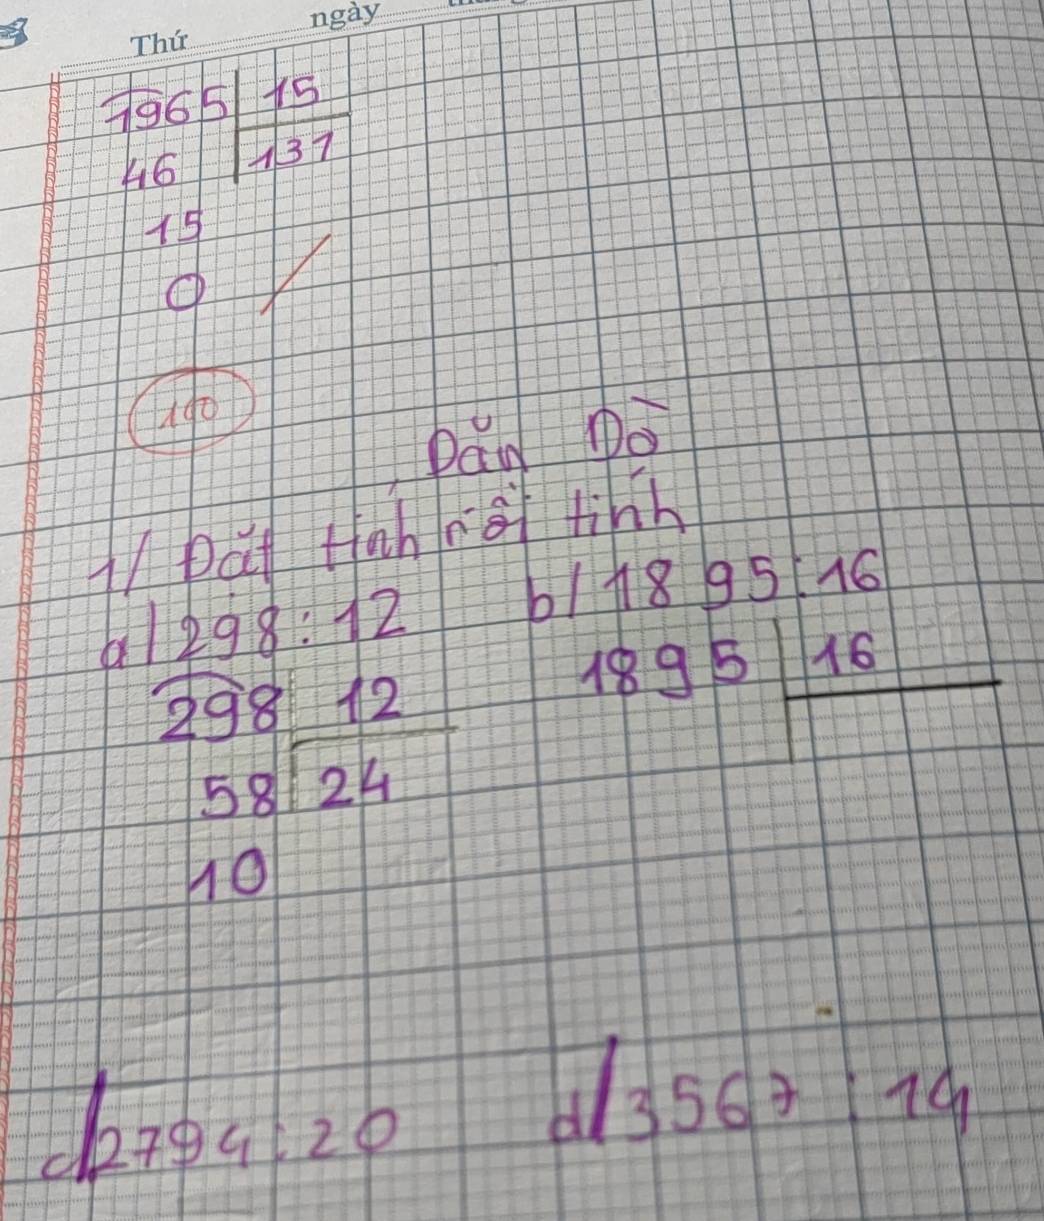 Thứ ngày
1965 15
46 131
15
0
100
Dặn Dò
1/ Đặt tính rồi tính
a/ 298 : 12 b/ 1895 : 16
298 12 1895 16
58 24
10
c/ 2794 : 20 d/ 3567 : 14